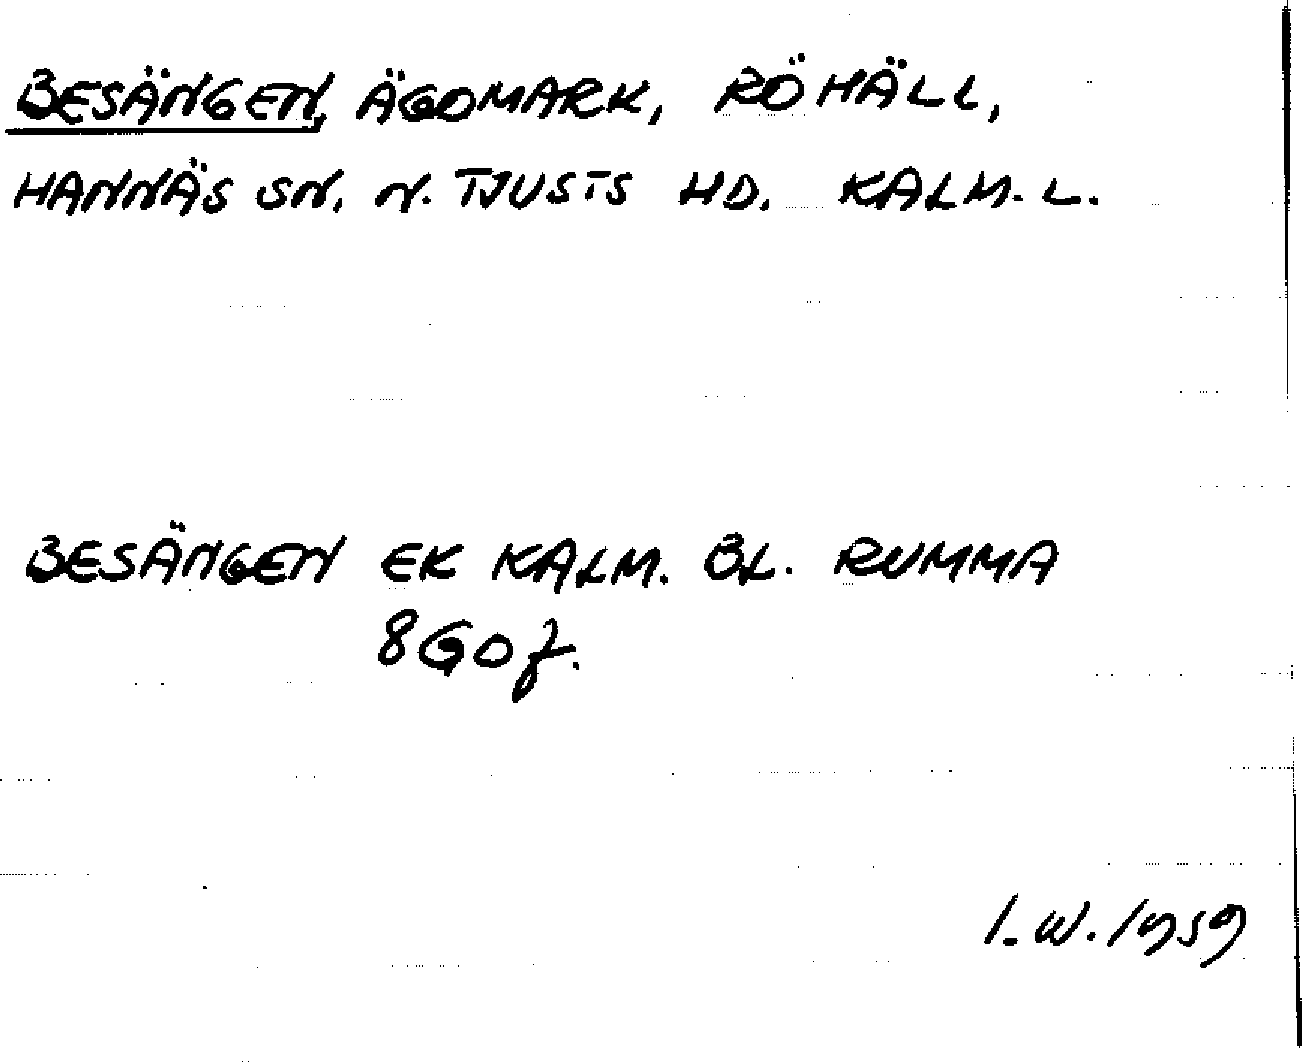 BESÄNGEN, ÄGOMARK, RÖHÄLL,
HANNÄS SN. N. TJUSTS HD. KALM. L.
BESÄNGEN EK KALM. BL. RUMMA
8G0f.
I. W. 1959